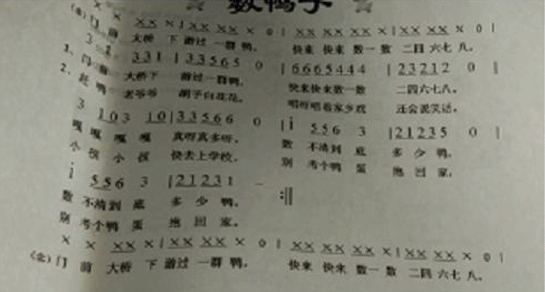 数鸭子
× × ×× × | ×× ×× × 0 | ×× ×× ×× × | ×× ×× × 0 |
(念)门 前 大桥 下 游过 一群 鸭, 快来 快来 数一 数 二四 六七 八。
3 1 3 3 1 | 3 3 5 6 5 0 | 6 6 6 5 4 4 4 | 2 3 2 1 2 0 |
1. 门 前 大桥下 游过 一群鸭, 快来快来数一数 二四六七八。
2. 赶 鸭 老爷爷 胡子白花花, 唱呀唱着家乡戏 还会说笑话。
3 1 0 3 1 0 | 3 3 5 6 6 0 | i 5 5 6 3 | 2 1 2 3 5 0 |
嘎 嘎 嘎 嘎 真呀真多呀, 数 不清到 底 多 少 鸭,
小 孩 小 孩 快去上学校, 别 考个鸭 蛋 抱 回 家。
i 5 5 6 3 | 2 1 2 3 1 – :||
数 不清到 底 多 少 鸭。
别 考个鸭 蛋 抱 回 家。
× × ×× × | ×× ×× × 0 | ×× ×× ×× × | ×× ×× × 0 |
(念)门 前 大桥 下 游过 一群 鸭, 快来 快来 数一 数 二四 六七 八。